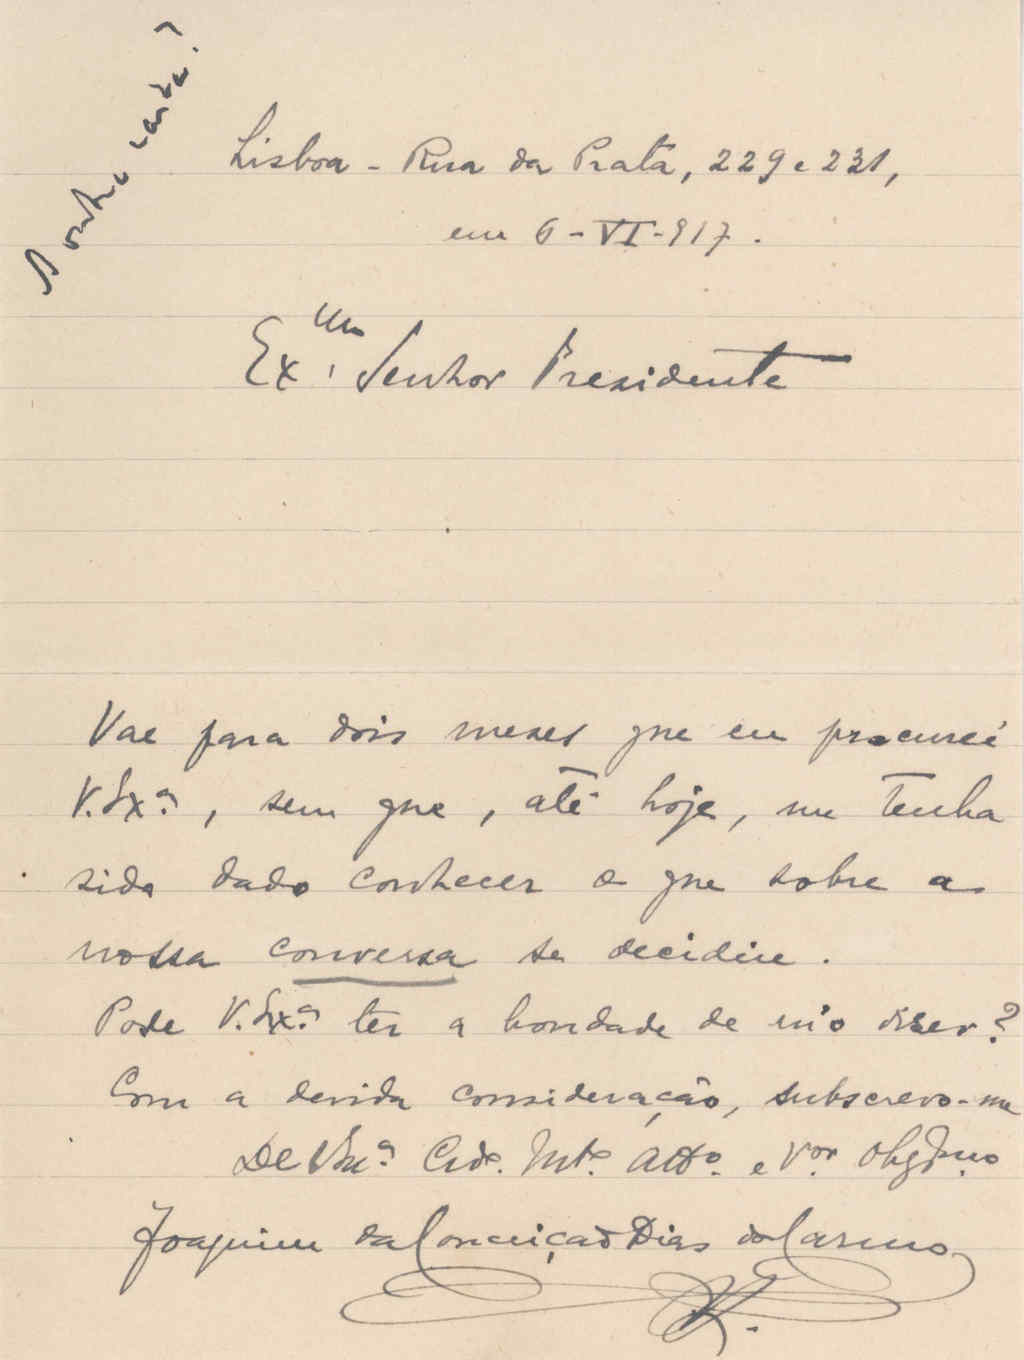 A outra carta?
Lisboa - Rua da Prata, 229 e 231,
em 6-VI-917.
Ex.mo Senhor Presidente
Vae para dois meses que eu procurei
V. Ex.ª, sem que, até hoje, me tenha
sido dado conhecer o que sobre a
nossa conversa se decidiu.
Pode V. Ex.ª ter a bondade de m'o dizer?
Com a devida consideração, subscrevo-me
De V. Ex.ª Cr.do Mt.º Att.º e V.or Obg.mo
Joaquim da Conceição Dias do Carmo